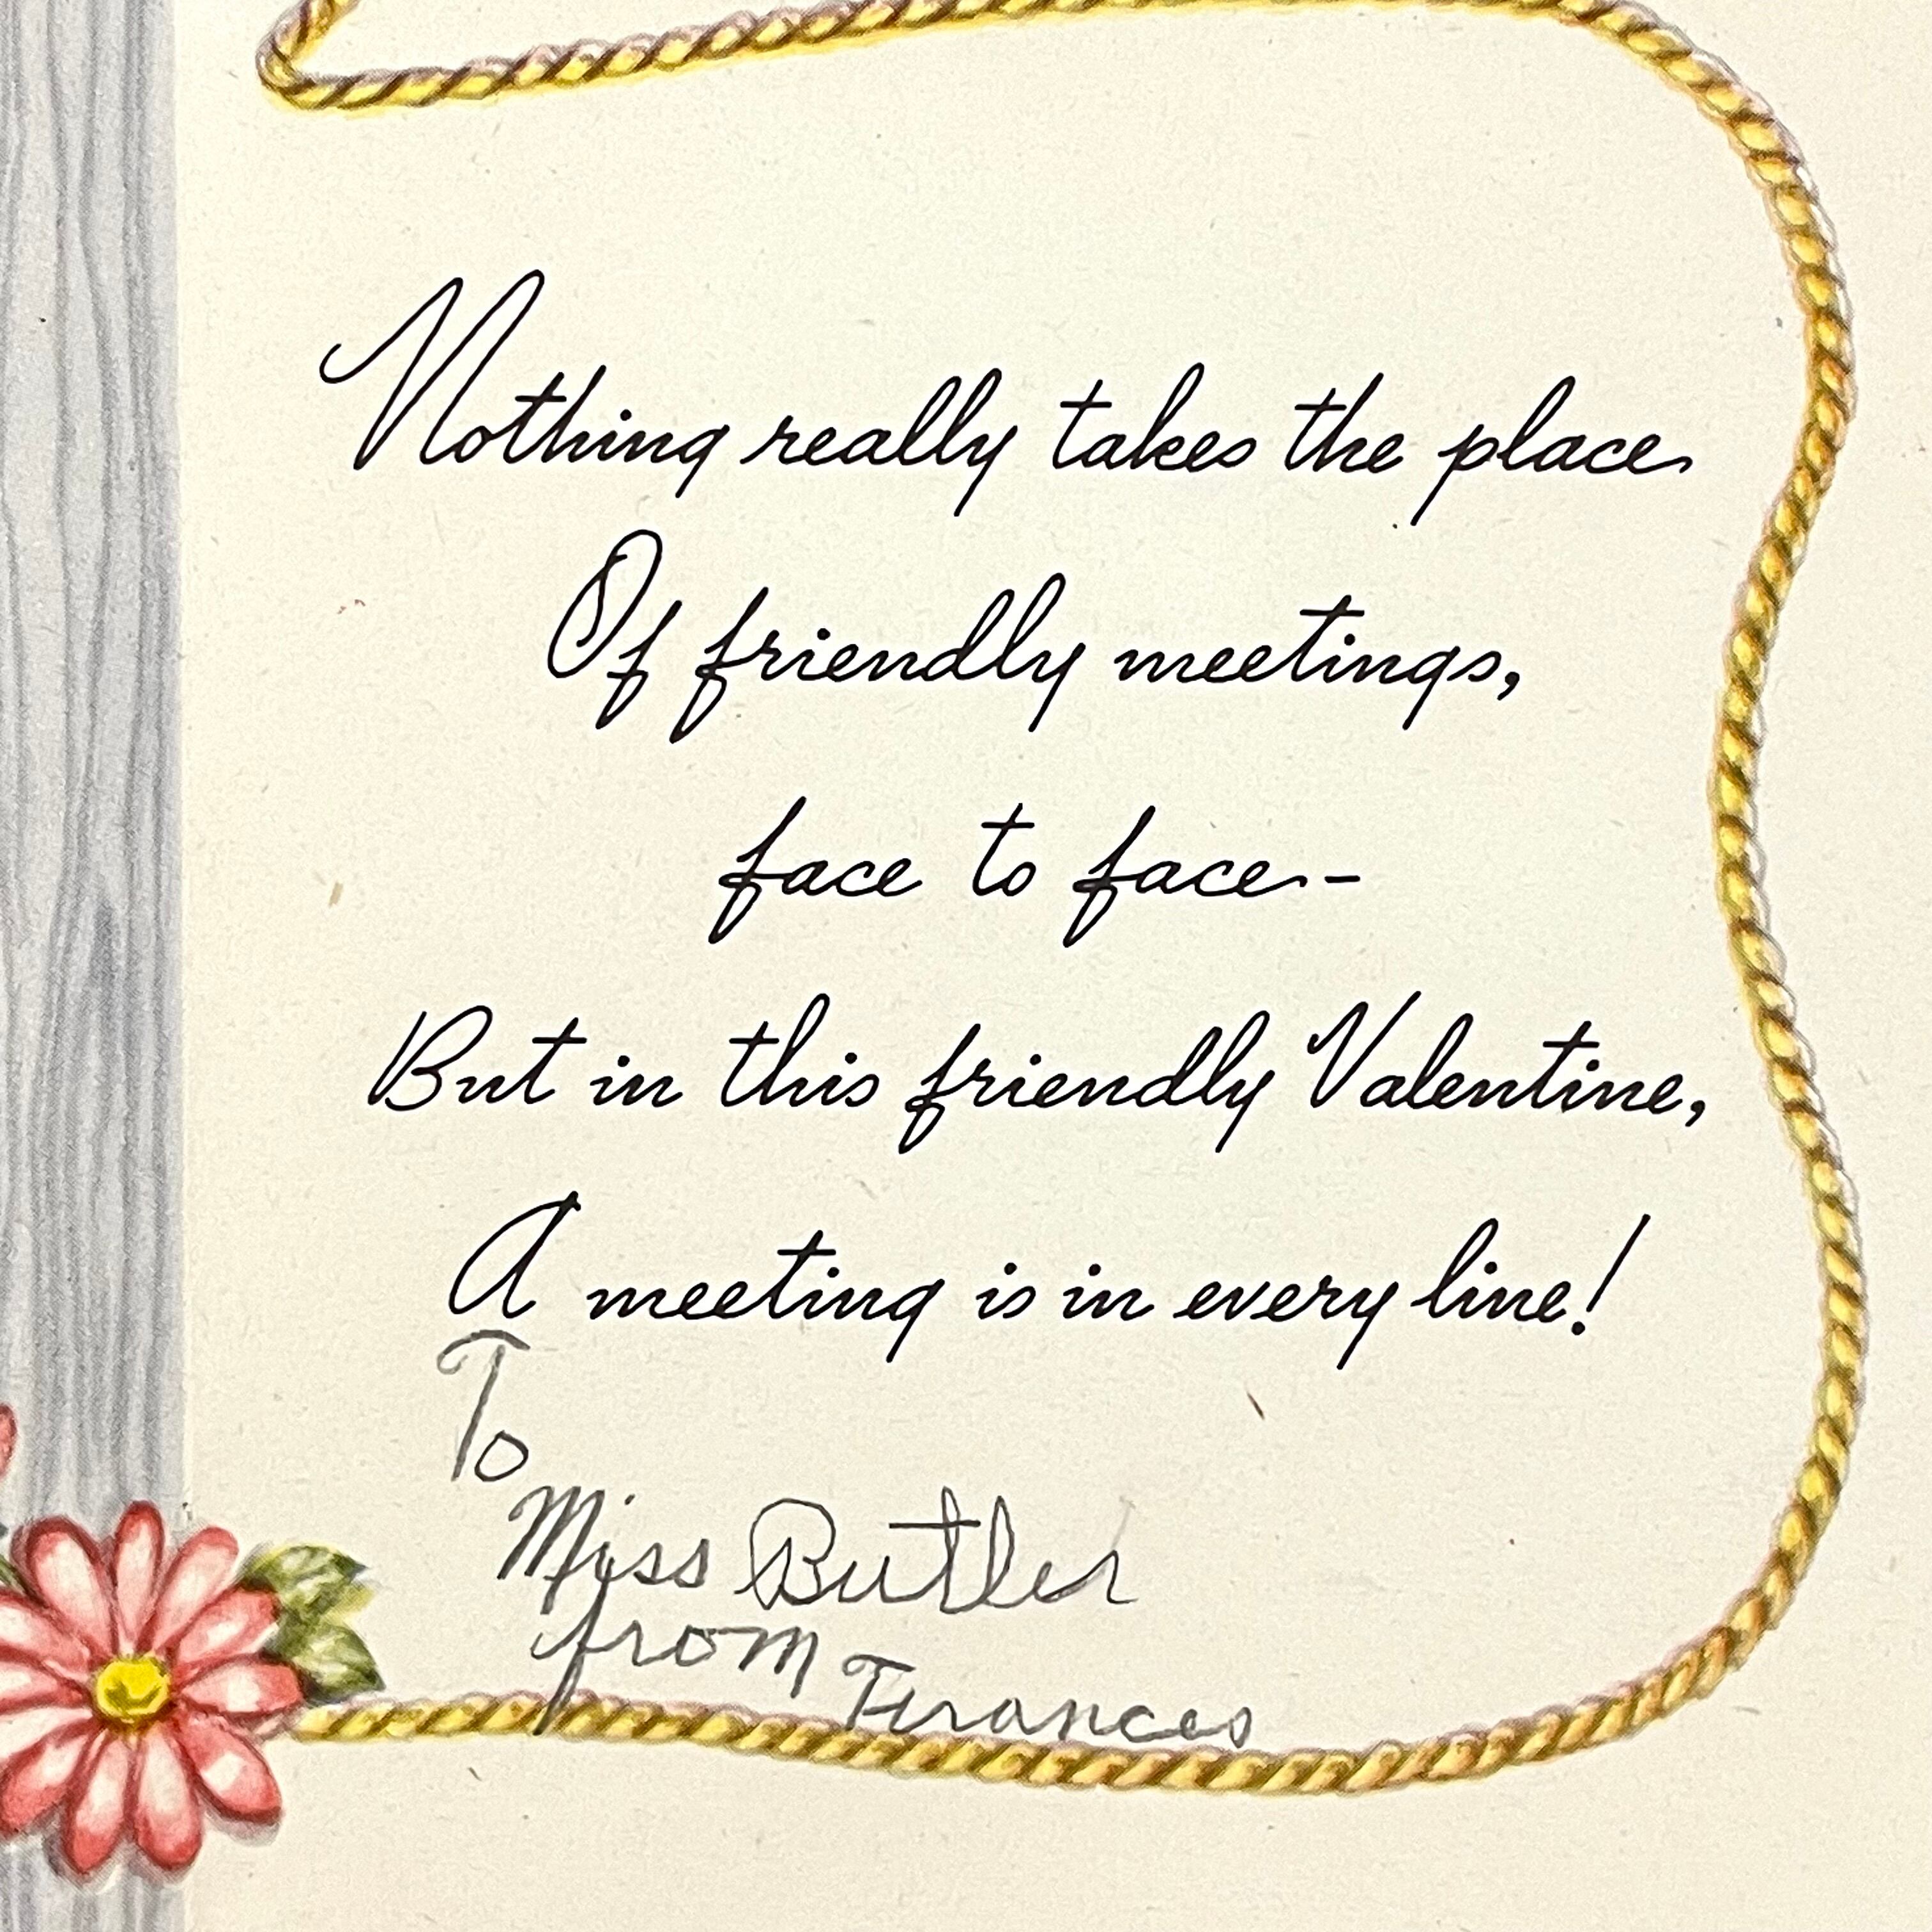 Nothing really takes the place
Of friendly meetings,
face to face-
But in this friendly Valentine,
A meeting is in every line!
To
Miss Butler
from Frances